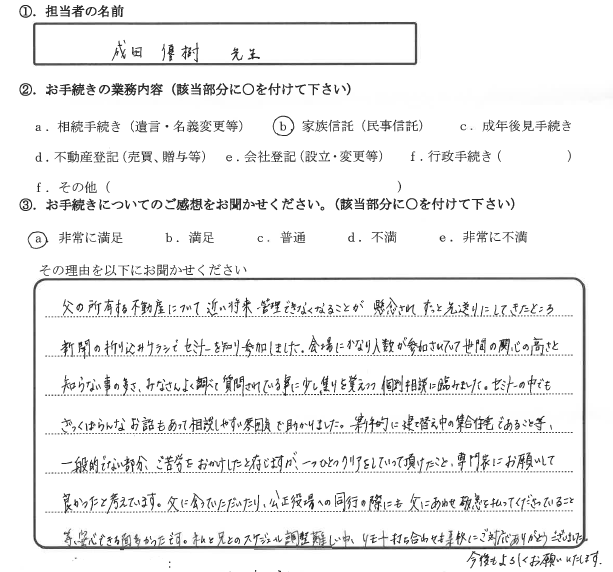 ①．担当者の名前
成田 優樹 先生
②．お手続きの業務内容（該当部分に〇を付けて下さい）
a．相続手続き（遺言・名義変更等） b．家族信託（民事信託） c．成年後見手続き
d．不動産登記（売買、贈与等） e．会社登記（設立・変更等） f．行政手続き（ ）
f．その他（ ）
③．お手続きについてのご感想をお聞かせください。（該当部分に〇を付けて下さい）
a．非常に満足 b．満足 c．普通 d．不満 e．非常に不満
その理由を以下にお聞かせください
父の所有する不動産について近い将来 管理できなくなることが 懸念されずっと先送りにしてきたところ
新聞の折り込みチラシでセミナーを知り参加しました。会場にかなり人数が参加されていて世間の関心の高さと
知らない事の多さ、みなさんよく調べて質問されている事に少し焦りを覚えつつ個別相談に臨みました。セミナーの中でも
ざっくばらんなお話もあって相談しやすい雰囲気で助かりました。 に建て替え中の集合住宅であること等、
一般的でない部分、ご苦労をおかけしたと存じますが、一つひとつクリアをしていって頂けたこと、専門家にお願いして
良かったと考えています。父に会っていただいたり、公正役場への同行の際にも父にあわせ 敬意を払ってくださっていること
等、安心できる面多かったです。私と兄とのスケジュール調整難しい中、リモート打ち合わせも柔軟にご対応ありがとうございました。
今後もよろしくお願いいたします。